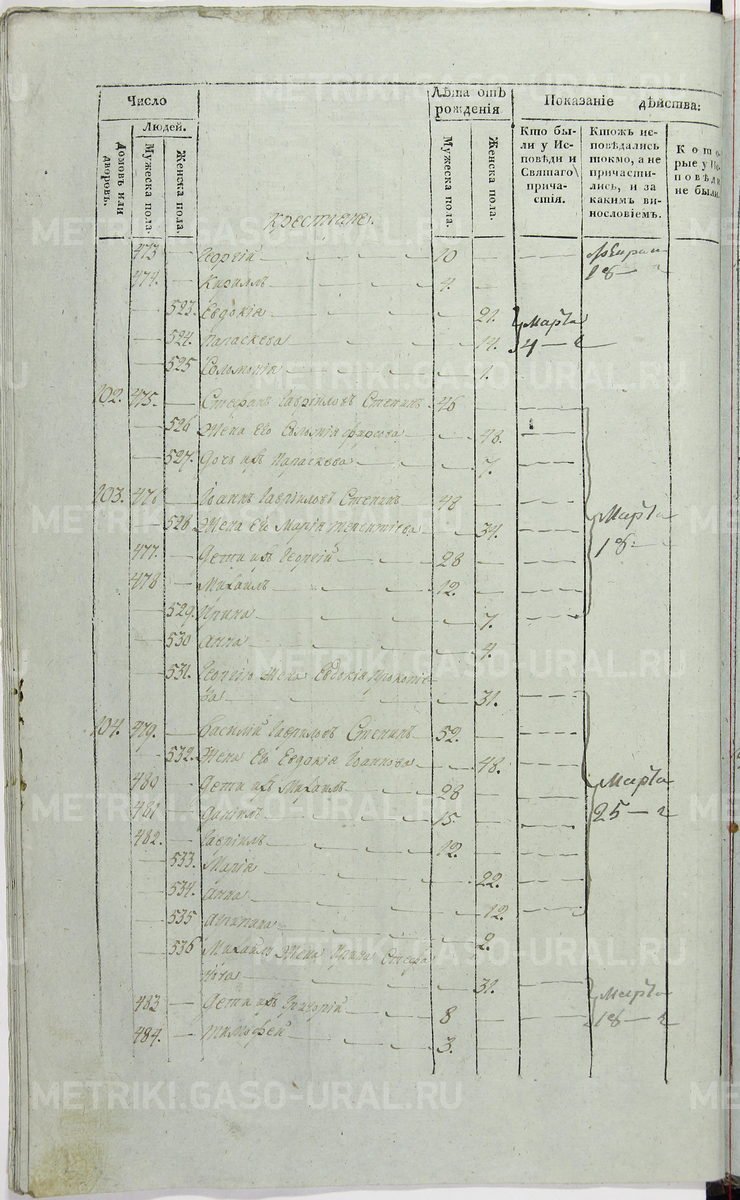 Число
Лѣта отъ рожденія
Показаніе дѣйства:
Домовъ или дворовъ.
Людей.
Мужеска пола.
Женска пола.
Мужеска пола.
Женска пола.
Кто были у Исповѣди и Святаго причастія.
Ктожъ исповѣдались токмо, а не причастились, и за какимъ винословіемъ.
Которые у Исповѣди не были.
крестьяне.
473 Георгій 10
474. Кириллъ 4.
18
523. Евдокія 21.
524. Параскева 14.
Марта 4
525 Соломонія 1.
102. 475. Стефанъ Гавриловъ Степинъ 46
526 Жена Его 48.
527. Дочь ихъ Параскева 7.
103. 476 Іоаннъ Гавриловъ Степинъ 48
528 Жена Его Марія Терентіева 34.
Марта 18
477. Дети ихъ Георгій 28
478 Михаилъ 12.
529. Ирина 7.
530 Анна 4.
531. Георгію Жена Евдокія Прокопіева 31.
104. 479. Василій Гавриловъ Степинъ 52.
532. Жена Его Евдокія Іоаннова 48.
480 Дети ихъ Михаилъ 28
Марта 25
481 Даніилъ 15
482. Гавріилъ 12.
533. Марія 22.
534. Анна 12.
535 2.
536 Михаилу Жена Ирина 31.
Марта 18
483 Дети ихъ Григорій 8
484. Тимофей 3.
METRIKI.GASO-URAL.RU